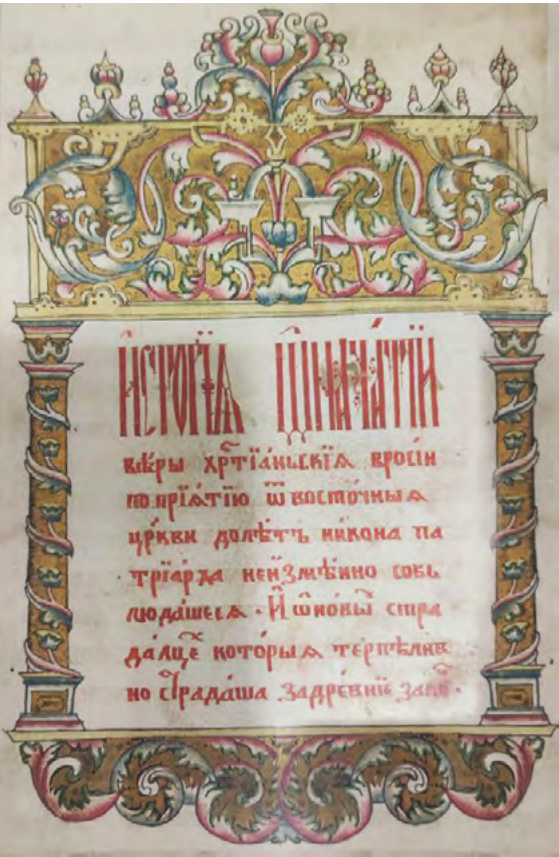 И҆сторі́ѧ ѡ҆ начⷶтіи
вѣ́ры хрⷭ҇тїа́ньскїѧ вросіи
по прїѧ́тїю ѿ восточныѧ
цр҃кви долѣ́тъ никона па
трїарха неи҆змѣ́нно собь
люда́шесѧ · И҆ ѡ҆новы́ⷯ стра
да́лцеⷯ кото́рыѧ терпѣлив
но страда́ша задре́внїе зако҇ⷩ ·